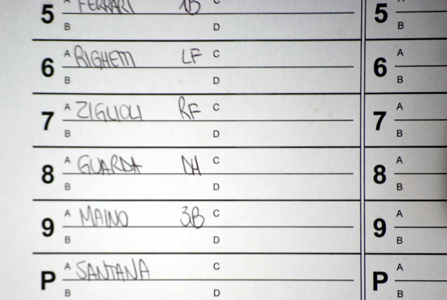 5 FERRARI 1B 5
B D B
6 A RIGHETTI LF C 6 A
B D B
7 A ZIGLIOLI RF C 7 A
B D B
8 A GUARDA DH C 8 A
B D B
9 A MAINO 3B C 9 A
B D B
P A SANTANA C P A
B D B